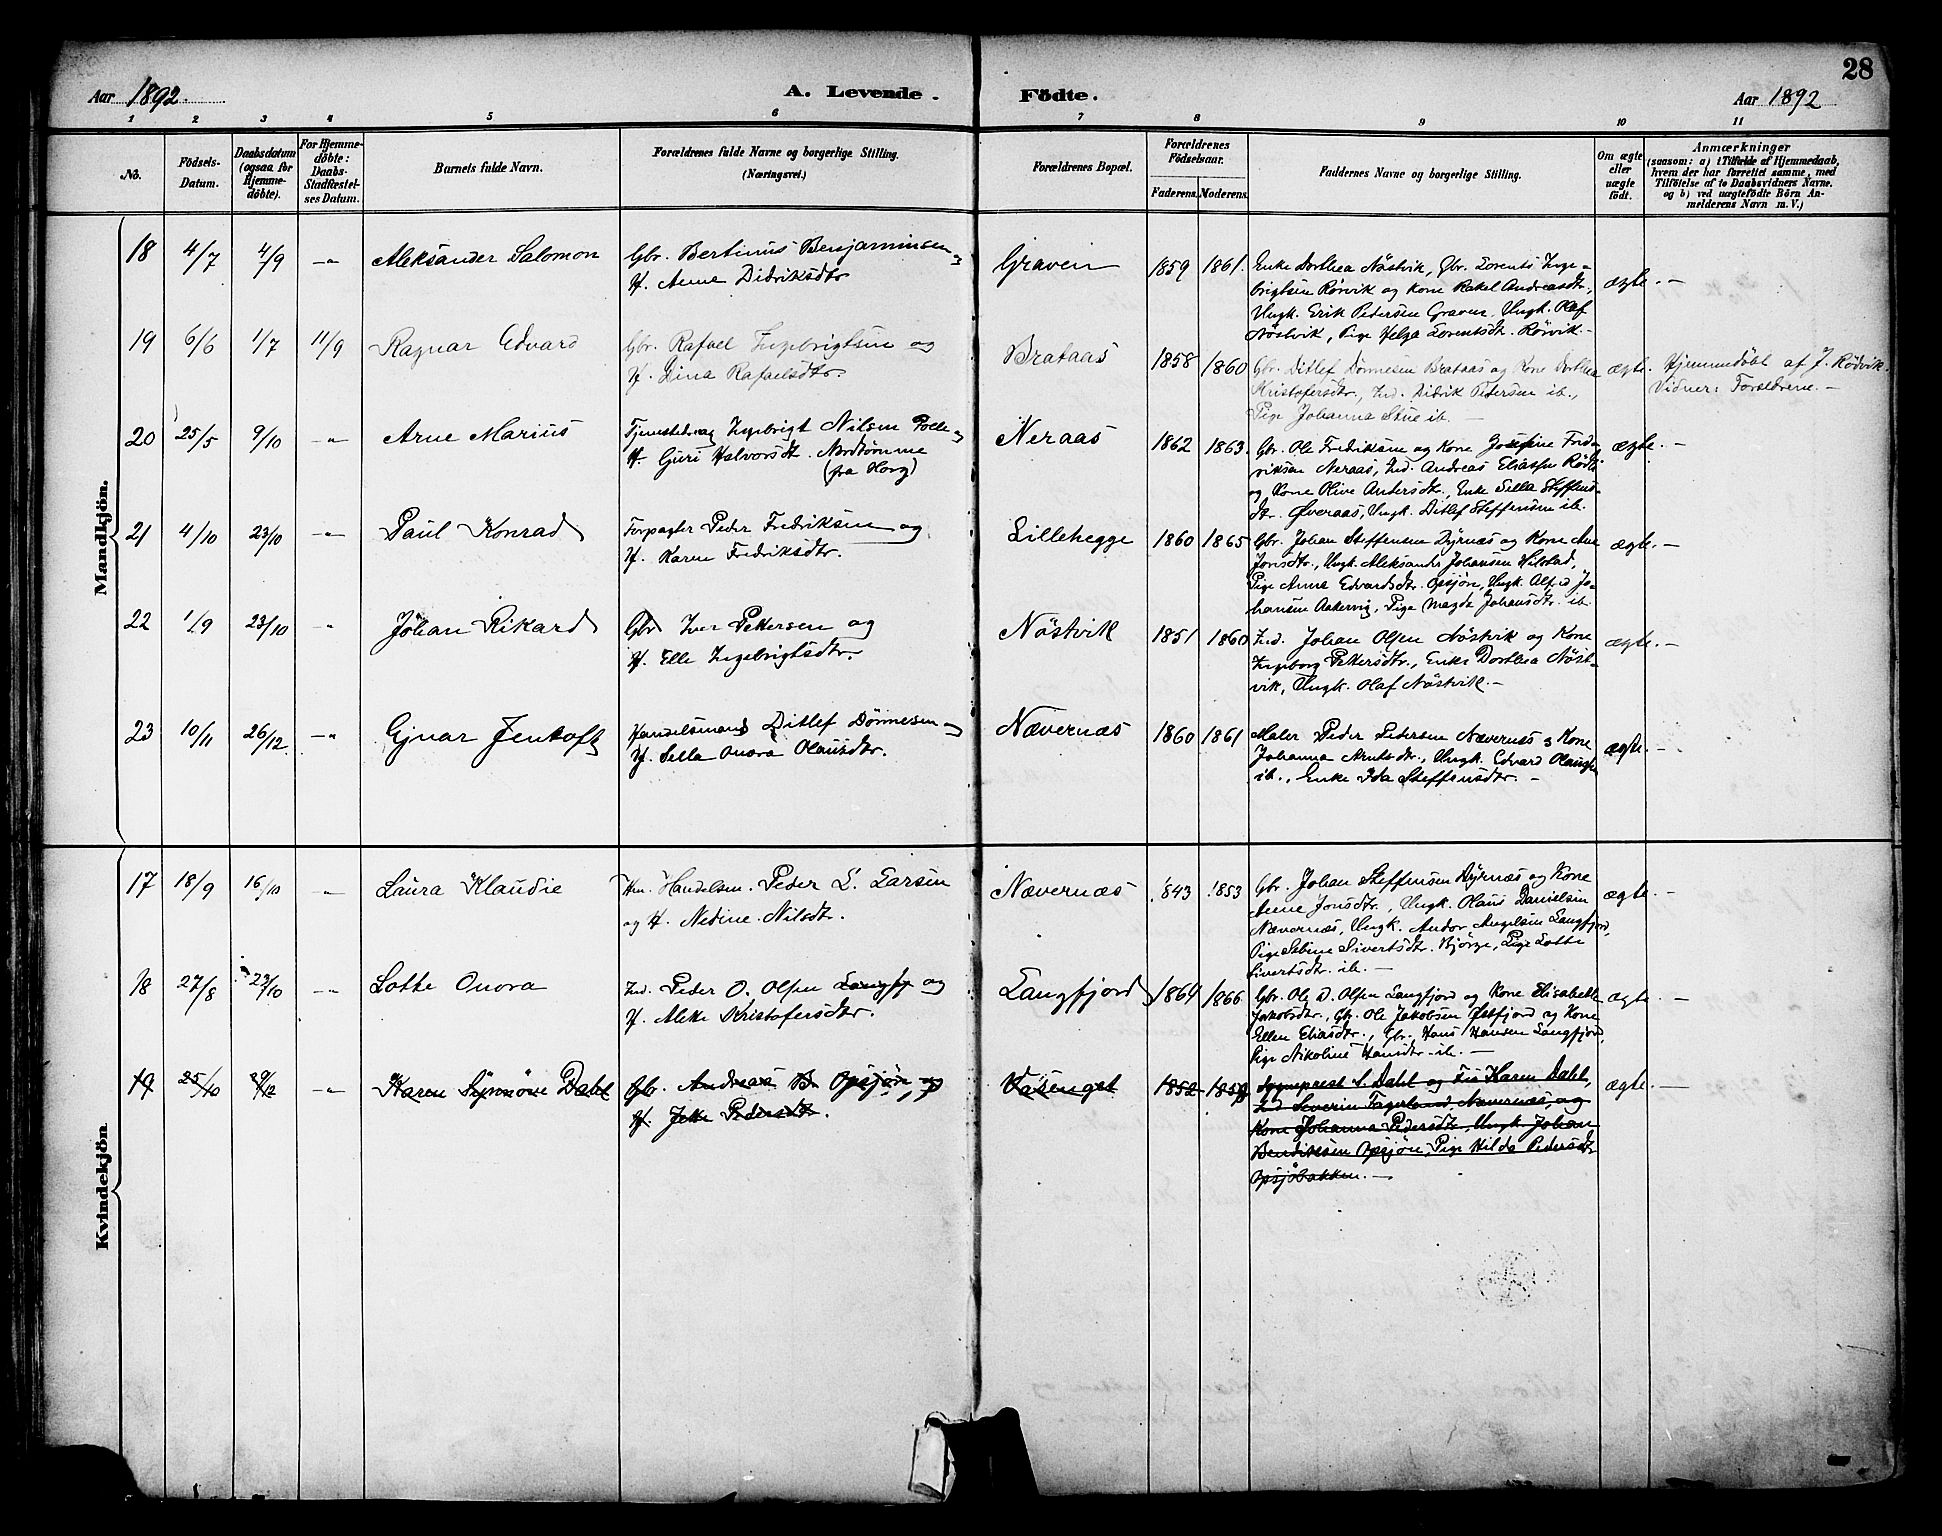 28
Aar 1892. A. Levende. Födte. Aar 1892
1 2 3 4 5 6 7 8 9 10 11
No.
Födsels-
Datum.
Daabsdatum
(ogsaa for
Hjemme-
döbte).
For Hjemme-
döbte:
Daabs-
Stadfæstel-
ses Datum.
Barnets fulde Navn.
Forældrenes fulde Navne og borgerlige Stilling.
(Næringsvei.)
Forældrenes Bopæl.
Forældrenes
Födselsaar.
Faderens. Moderens.
Faddernes Navne og borgerlige Stilling.
Om ægte
eller
uægte
født.
Anmærkninger
(saasom: a) i Tilfælde af Hjemmedaab,
hvem der har forrettet samme, med
Tilföielse af to Daabsvidners Navne.
og b) ved uægtefödte Börn An-
melderens Navn m. V.)
Mandkjön.
18 4/7 4/9 -"- Aleksander Salomon
Gbr. Bertinus Benjaminsen og
H. Anne Didriksdtr.
Graven 1859 1861.
Enke Dorthea Nöstvik, Gbr. Lorents Inge-
brigtsen Rörvik og Kone Rakel Andreasdtr.,
Ungk. Erik Petersen Graven, Ungk. Olaf
Nöstvik, Pige Helga Lorentsdt. Rörvik.-
ægte. -
19 6/6 1/7 11/9 Ragnar Edvard
Gbr. Rafael Ingebrigtsen og
H. Dina Rafaelsdtr.
Brataas 1858 1860
Gbr. Ditlef Dönnesen Brataas og Kone Dorthea
Kristofersdtr., Ind. Didrik Pedersen ib.,
Pige Johanna Stue ib. -
ægte.
Hjemmedöbt af J. Rödvik.
Vidner: Forældrene. -
20 25/5 9/10 -"- Arne Marius
Ingebrigt Nilsen Polle og
H. Guri Halvorsdt.
(fra Horg)
Neraas 1862 1863.
Gbr. Ole Fredriksen og Kone Josefine Fred-
riksen Neraas, Ind. Andreas Eliassen
og Kone Olive Andersdtr., Enke Silla Steffens-
dtr. Øveraas, Ungk. Ditlef Steffensen ib.
ægte. -
21 4/10 23/10 -"- Paul Konrad
Forpagter Peder Fredriksen og
H. Karen Fredriksdtr.
Lillehegge 1860 1865
Gbr. Johan Steffensen Dyrnæs og Kone Ane
Jonsdtr., Ungk. Aleksander Johansen Hilstad,
Pige Anna Edvardsdtr. Opsjön, Ungk. Alfred Jo-
hansen Aakervig, Pige Magda Johansdtr. ib.
ægte. -
22 1/9 23/10 " Johan Rikard
Gbr. Iver Pettersen og
H. Elle Ingebrigtsdtr.
Nöstvik 1851 1860
Ind. Johan Olsen Nöstvik og Kone
Ingeborg Pettersdtr., Enke Dorthea Nöst-
vik, Ungk. Olaf Nöstvik. -
ægte. -
23 10/11 26/12 -"- Ejnar Jentoft
Handelsmand Ditlef Dönnesen og
H. Silla Onora Olausdtr.
Nævernæs 1860 1861
Maler Peder Pedersen Nævernæs og Kone
Johanna Arntsdtr., Ungk. Edvard Olausen
ib., Enke Ida Steffensdtr. -
ægte. -
Kvindekjön
17 18/9 16/10 -"- Laura Klaudie
Handelsm. Peder L. Larsen
og H. Nedine Nilsdtr.
Nævernæs 1843 1853
Gbr. Johan Steffensen Dyrnæs og Kone
Anne Jonsdtr., Ungk. Olaus Danielsen
Nævernæs, Ungk. Andor Angelsen Langfjord,
Pige Sivertsdtr. Bjørge, Pige Lotte
Sivertsdtr. ib. -
ægte. -
18 27/8 23/10 -"- Lotte Onora
Ind. Peder O. Olsen Langfj og
H. Alette Kristofersdtr.
Langfjord 1864 1866
Gbr. Ole D. Olsen Langfjord og Kone Elisabeth
Jakobsdtr., Gbr. Ole Jakobsen Østfjord og Kone
Ellen Eliasdtr., Gbr. Hans Hansen Langfjord,
Pige Nikoline Hansdtr. ib. -
ægte. -
19 25/10 29/12 -"- Karen Synnöve Dahl
Gbr. Andreas B. Opsjön og
H. Jette Pedersdtr.
Vasenget 1852 1859
Sogneprest S. Dahl og Frk Karen Dahl,
Ind. Severin Fagerland Nævernæs, og
Kone Johanna Pedersdtr, Ungk. Johan
Bendiksen Opsjön, Pige Hilda Pedersdtr
Opsjöbakken. -
ægte. -